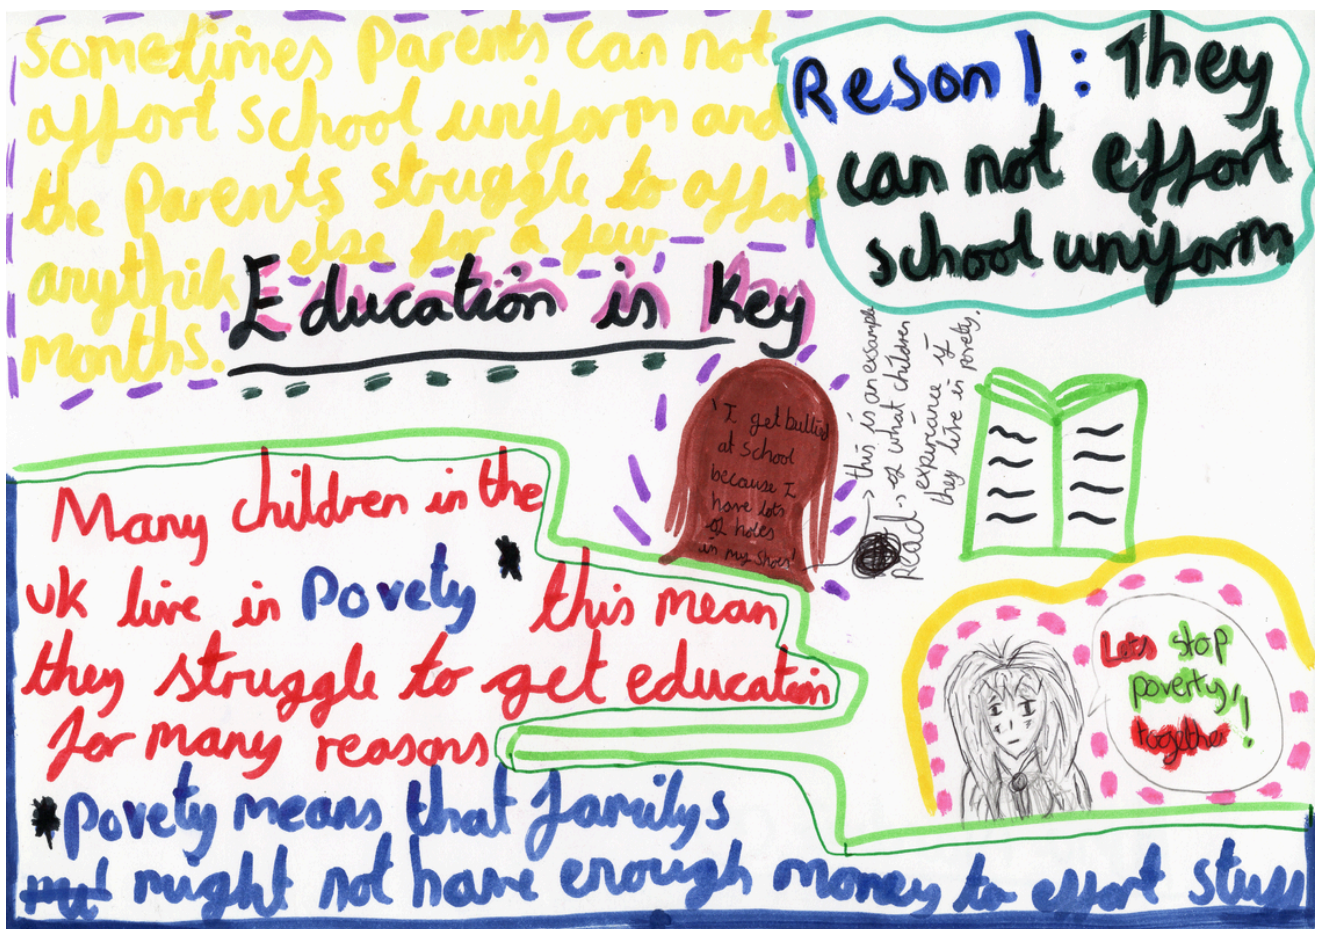 Sometimes Parents can not
affort school uniform and
the Parents struggle to affort
anythik else for a few
months.
Reson 1: They
can not effort
school uniform
Education is Key
'I get bullied
at school
because I
have lots
of holes
in my shoes!'
Read
this is an exsample
of what children
expiriance if
they live in povety.
Many children in the
UK live in Povety * this mean
they struggle to get education
for many reasons
Lets stop
poverty,
together!
*Povety means that familys
might not have enough money to effort stuff